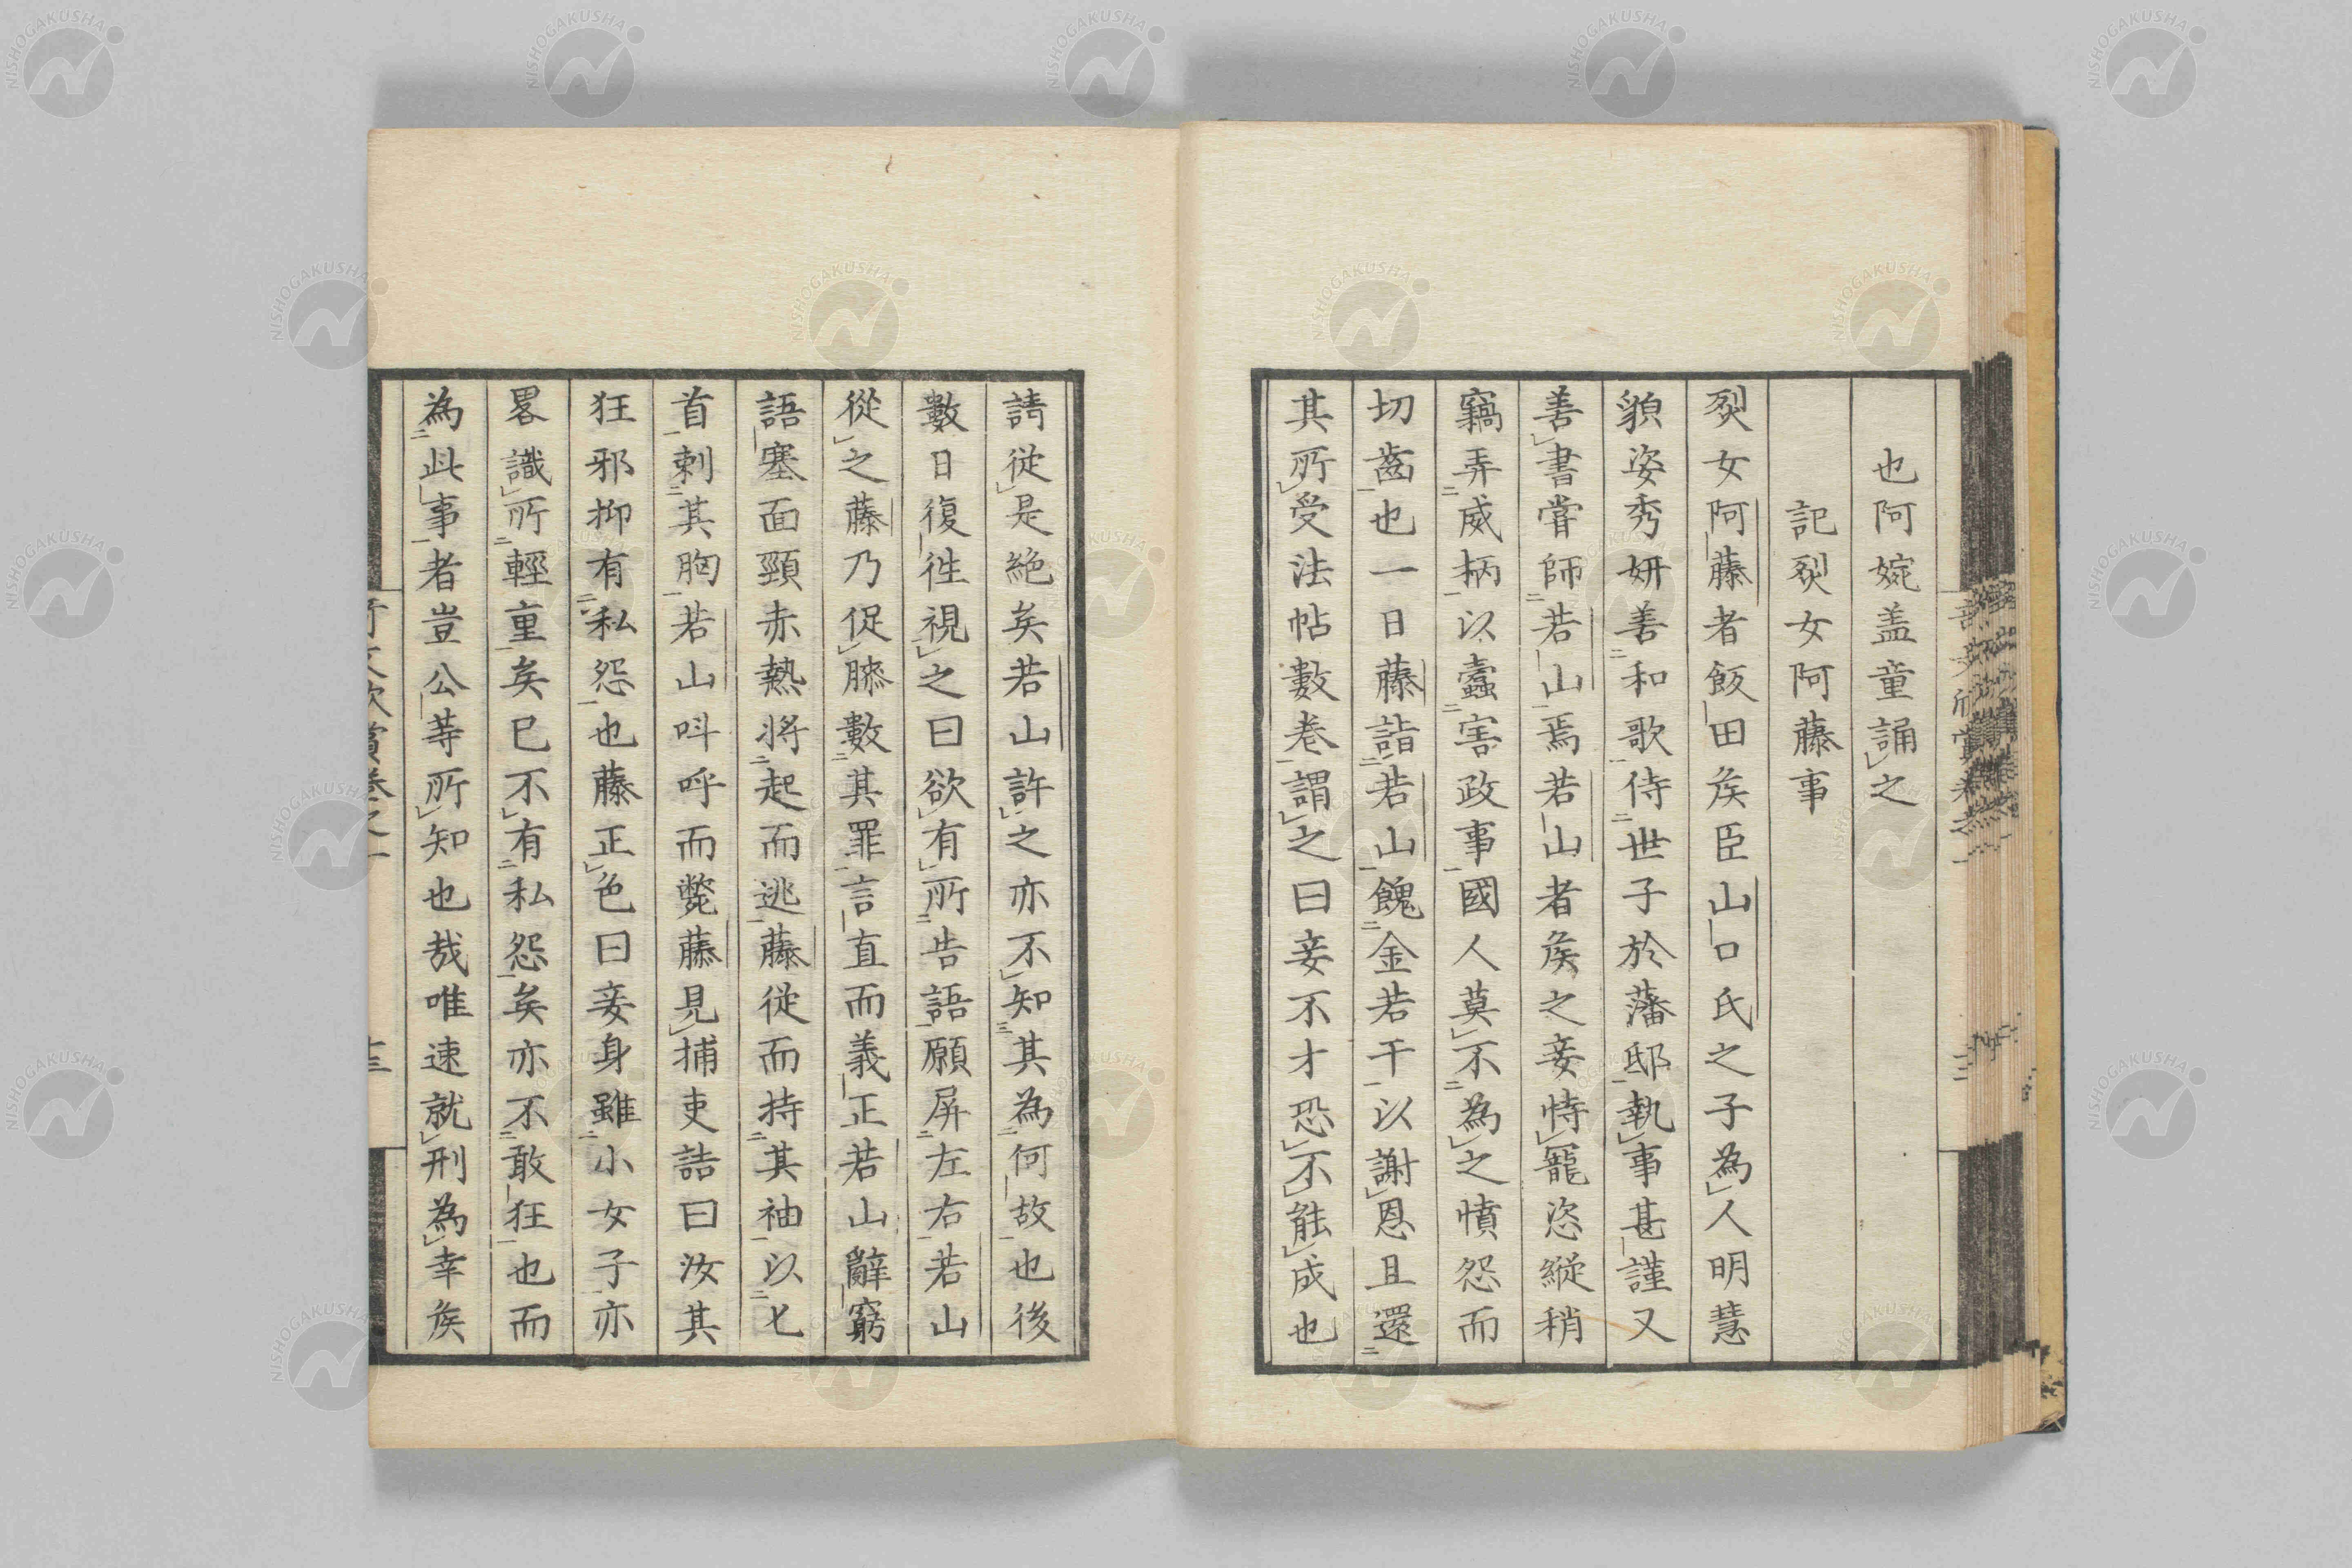 也阿婉盖童誦之
記烈女阿藤事
烈女阿藤者飯田矦臣山口氏之子為人明慧
貌姿秀妍善和歌侍世子於藩邸執事甚謹又
善書嘗師若山焉若山者矦之妾恃寵恣縱稍
竊弄威柄以蠧害政事國人莫不為之憤怨而
切齒也一日藤詣若山餽金若干以謝恩且還
其所受法帖數卷謂之曰妾不才恐不能成也
請従是絶矣若山許之亦不知其為何故也後
數日復徃視之曰欲有所告語願屏左右若山
從之藤乃促膝數其罪言直而義正若山辭窮
語塞面頸赤熱将起而逃藤従而持其袖以匕
首刺其胸若山呌呼而斃藤見捕吏詰曰汝其
狂邪抑有私怨也藤正色曰妾身雖小女子亦
畧識所輕重矣已不有私怨矣亦不敢狂也而
為此事者豈公等所知也哉唯速就刑為幸矦